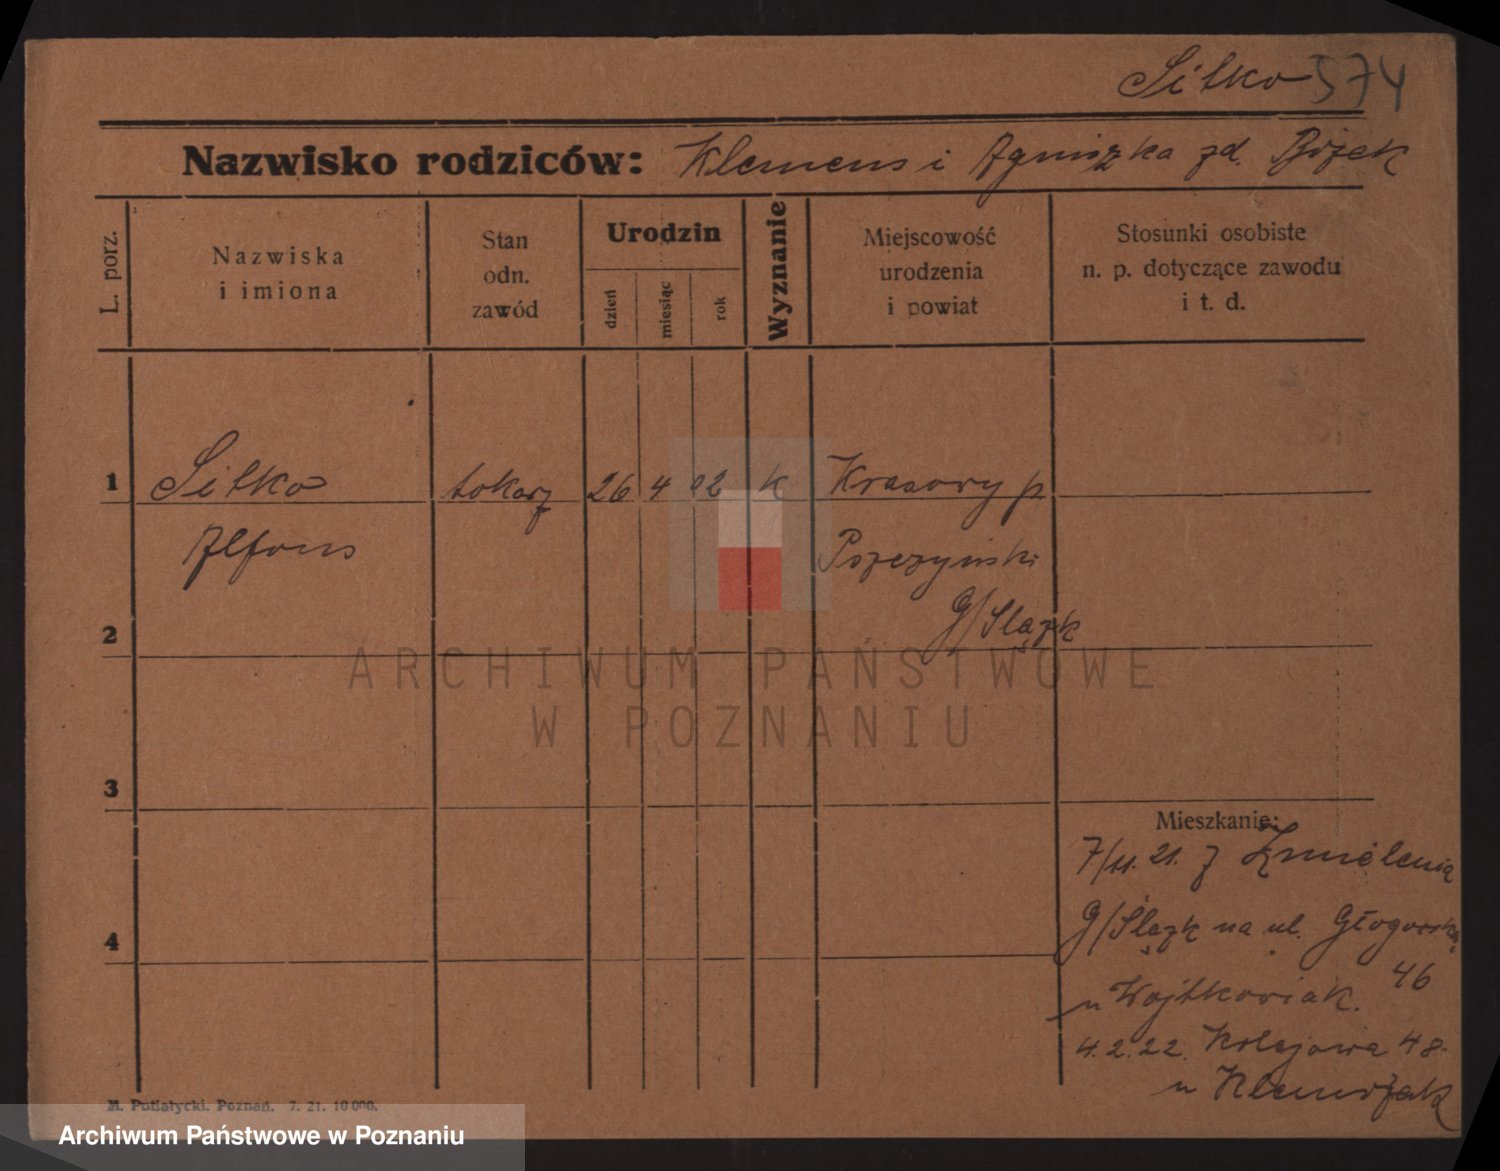 Sitko 574
Nazwisko rodziców: Klemens i Agniszka zd. Bożek
L. porz.
Nazwiska
i imiona
Stan
odn.
zawód
Urodzin
dzień
miesiąc
rok
Wyznanie
Miejscowość
urodzenia
i powiat
Stosunki osobiste
n. p. dotyczące zawodu
i t. d.
1 Sitko tokarz 26 4 02 k Krasowy p
Alfons Pszczyński
G/Slązk
2
3
4
Mieszkanie:
7/11. 21. z
G/Ślązk na ul. Głogowską
46
u Wojtkowiak.
4. 2. 22. Kolejowa 48.
u
M. Putiatycki. Poznań. 7. 21. 10 000.
ARCHIWUM PAŃSTWOWE
W POZNANIU
Archiwum Państwowe w Poznaniu